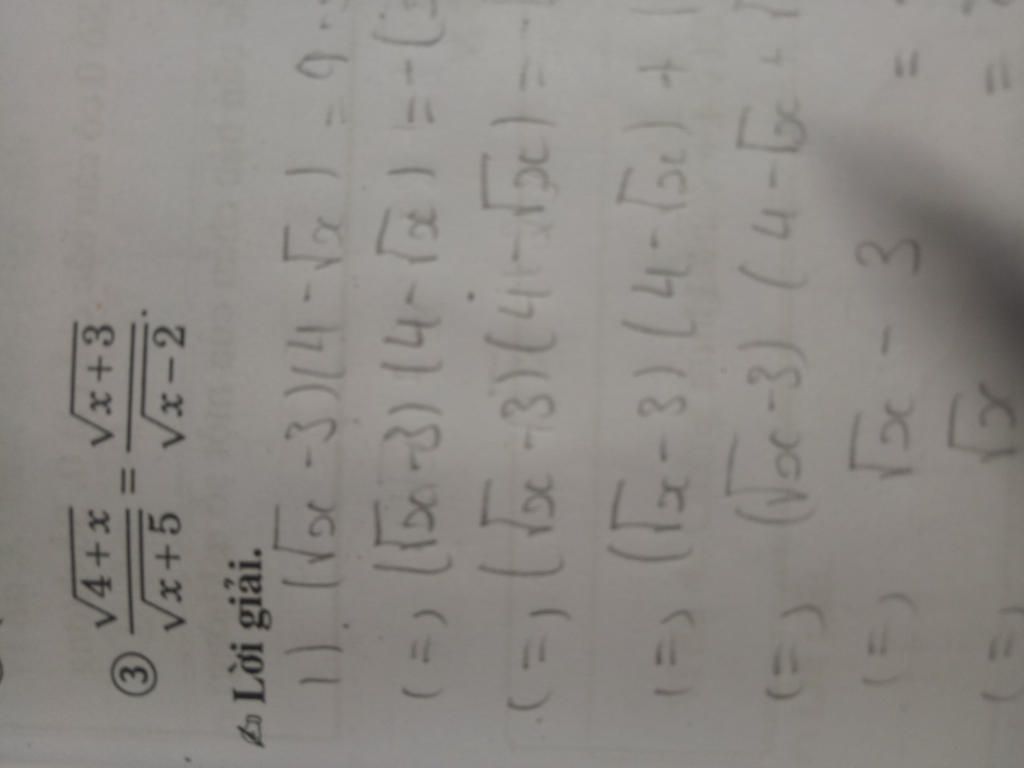 ③ √(4+x)/√(x+5) = √(x+3)/√(x−2).
✍ Lời giải.
1) (√x − 3)(4 − √x) = 9
(=) (√x − 3)(4 − √x) = −(
(=) (√x − 3)(4 − √x) =
(=) (√x − 3)(4 − √x) +
(=) (√x − 3)(4 − √x +
(=) √x − 3 =
(=) √x =